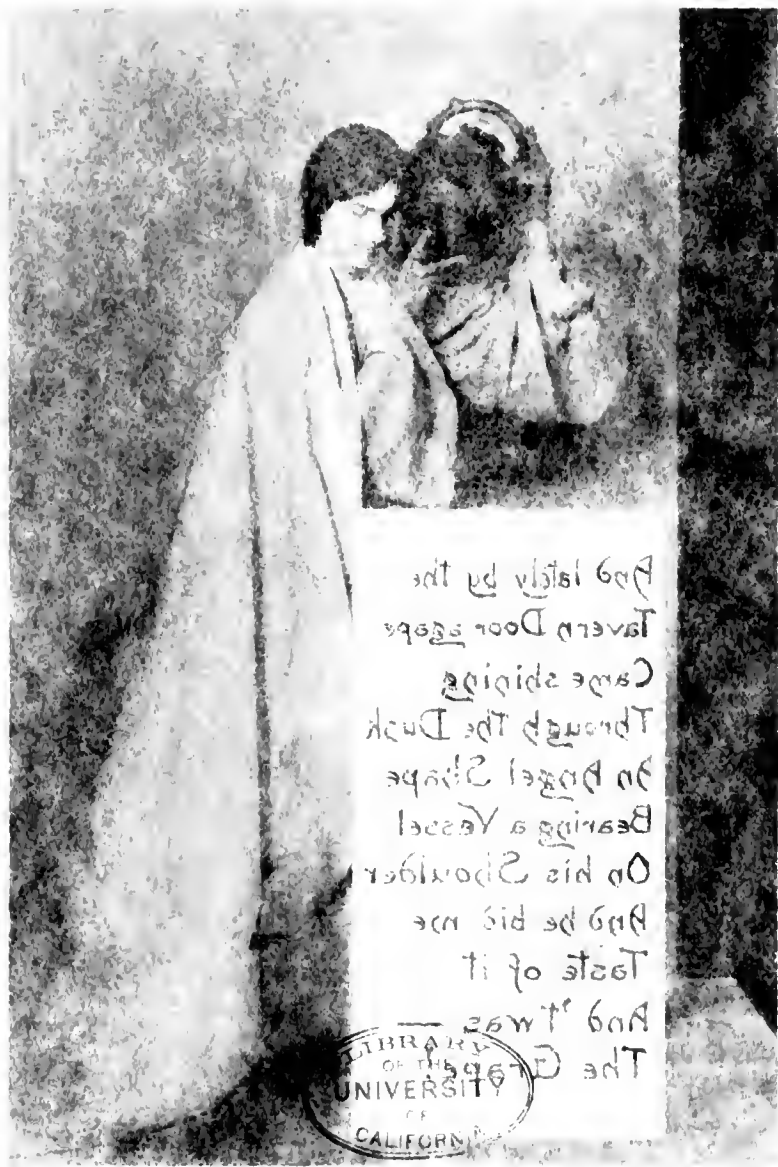 And lately by the
Tavern Door agape
Came shining
Through the Dusk
An Angel Shape
Bearing a Vessel
On his Shoulder
And he bid me
Taste of it
And 't was —
The Grape!
LIBRARY
OF THE
UNIVERSITY
OF
CALIFORNIA